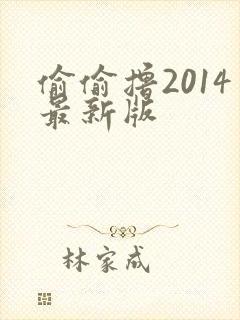 偷偷撸2014
最新版
林家成